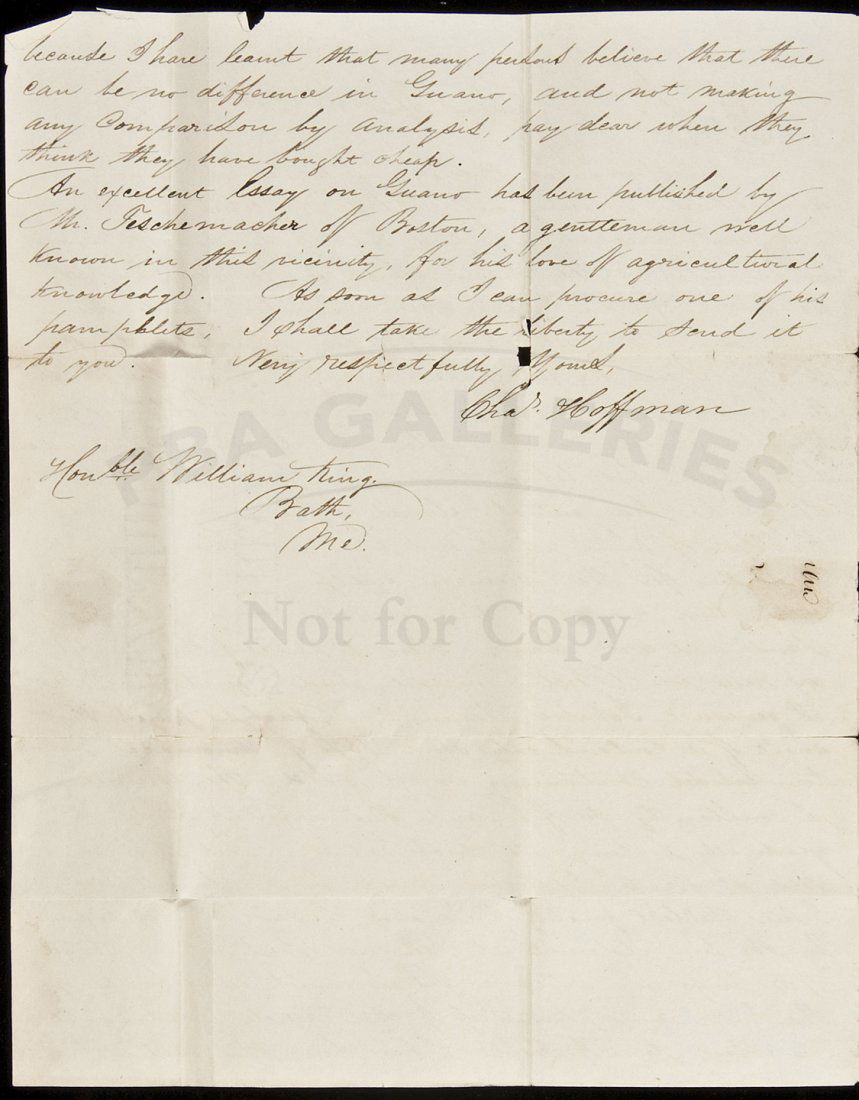 because I have learnt that many persons believe that there
can be no difference in Guano, and not making
any Comparison by analysis, pay dear when they
think they have bought cheap.
An excellent Essay on Guano has been published by
Mr. Teschemacher of Boston, a gentleman well
known in this vicinity, for his love of agricultural
knowledge. As soon as I can procure one of his
pamphlets, I shall take the liberty to send it
to you. Very respectfully Yours,
Chas. Hoffman
Honble William King.
Bath,
Me.
PBA GALLERIES
Not for Copy